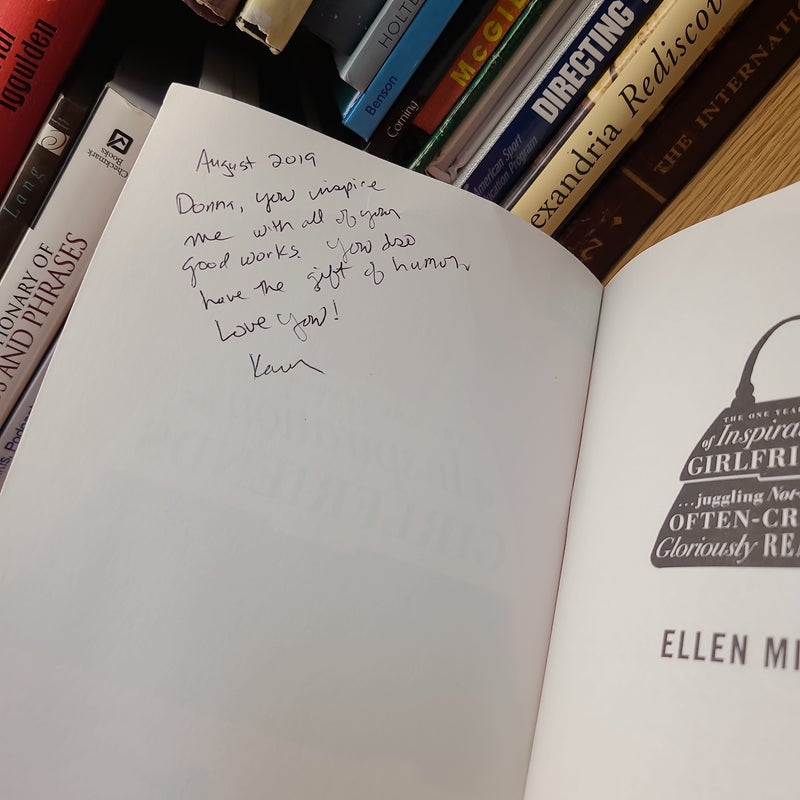 August 2019
Donna, you inspire
me with all of your
good works. You also
have the gift of humor
Love you!
Karen
THE ONE YEA
of Inspira
GIRLFRI
...juggling Not-
OFTEN-CR
Gloriously REA
ELLEN MI
Iggulden
Lang
Checkmark
Books
IONARY OF
S AND PHRASES
HOLT
Benson
Corning
McGI
DIRECTING
American Sport
Education Program
exandria Rediscov
THE INTERNATI